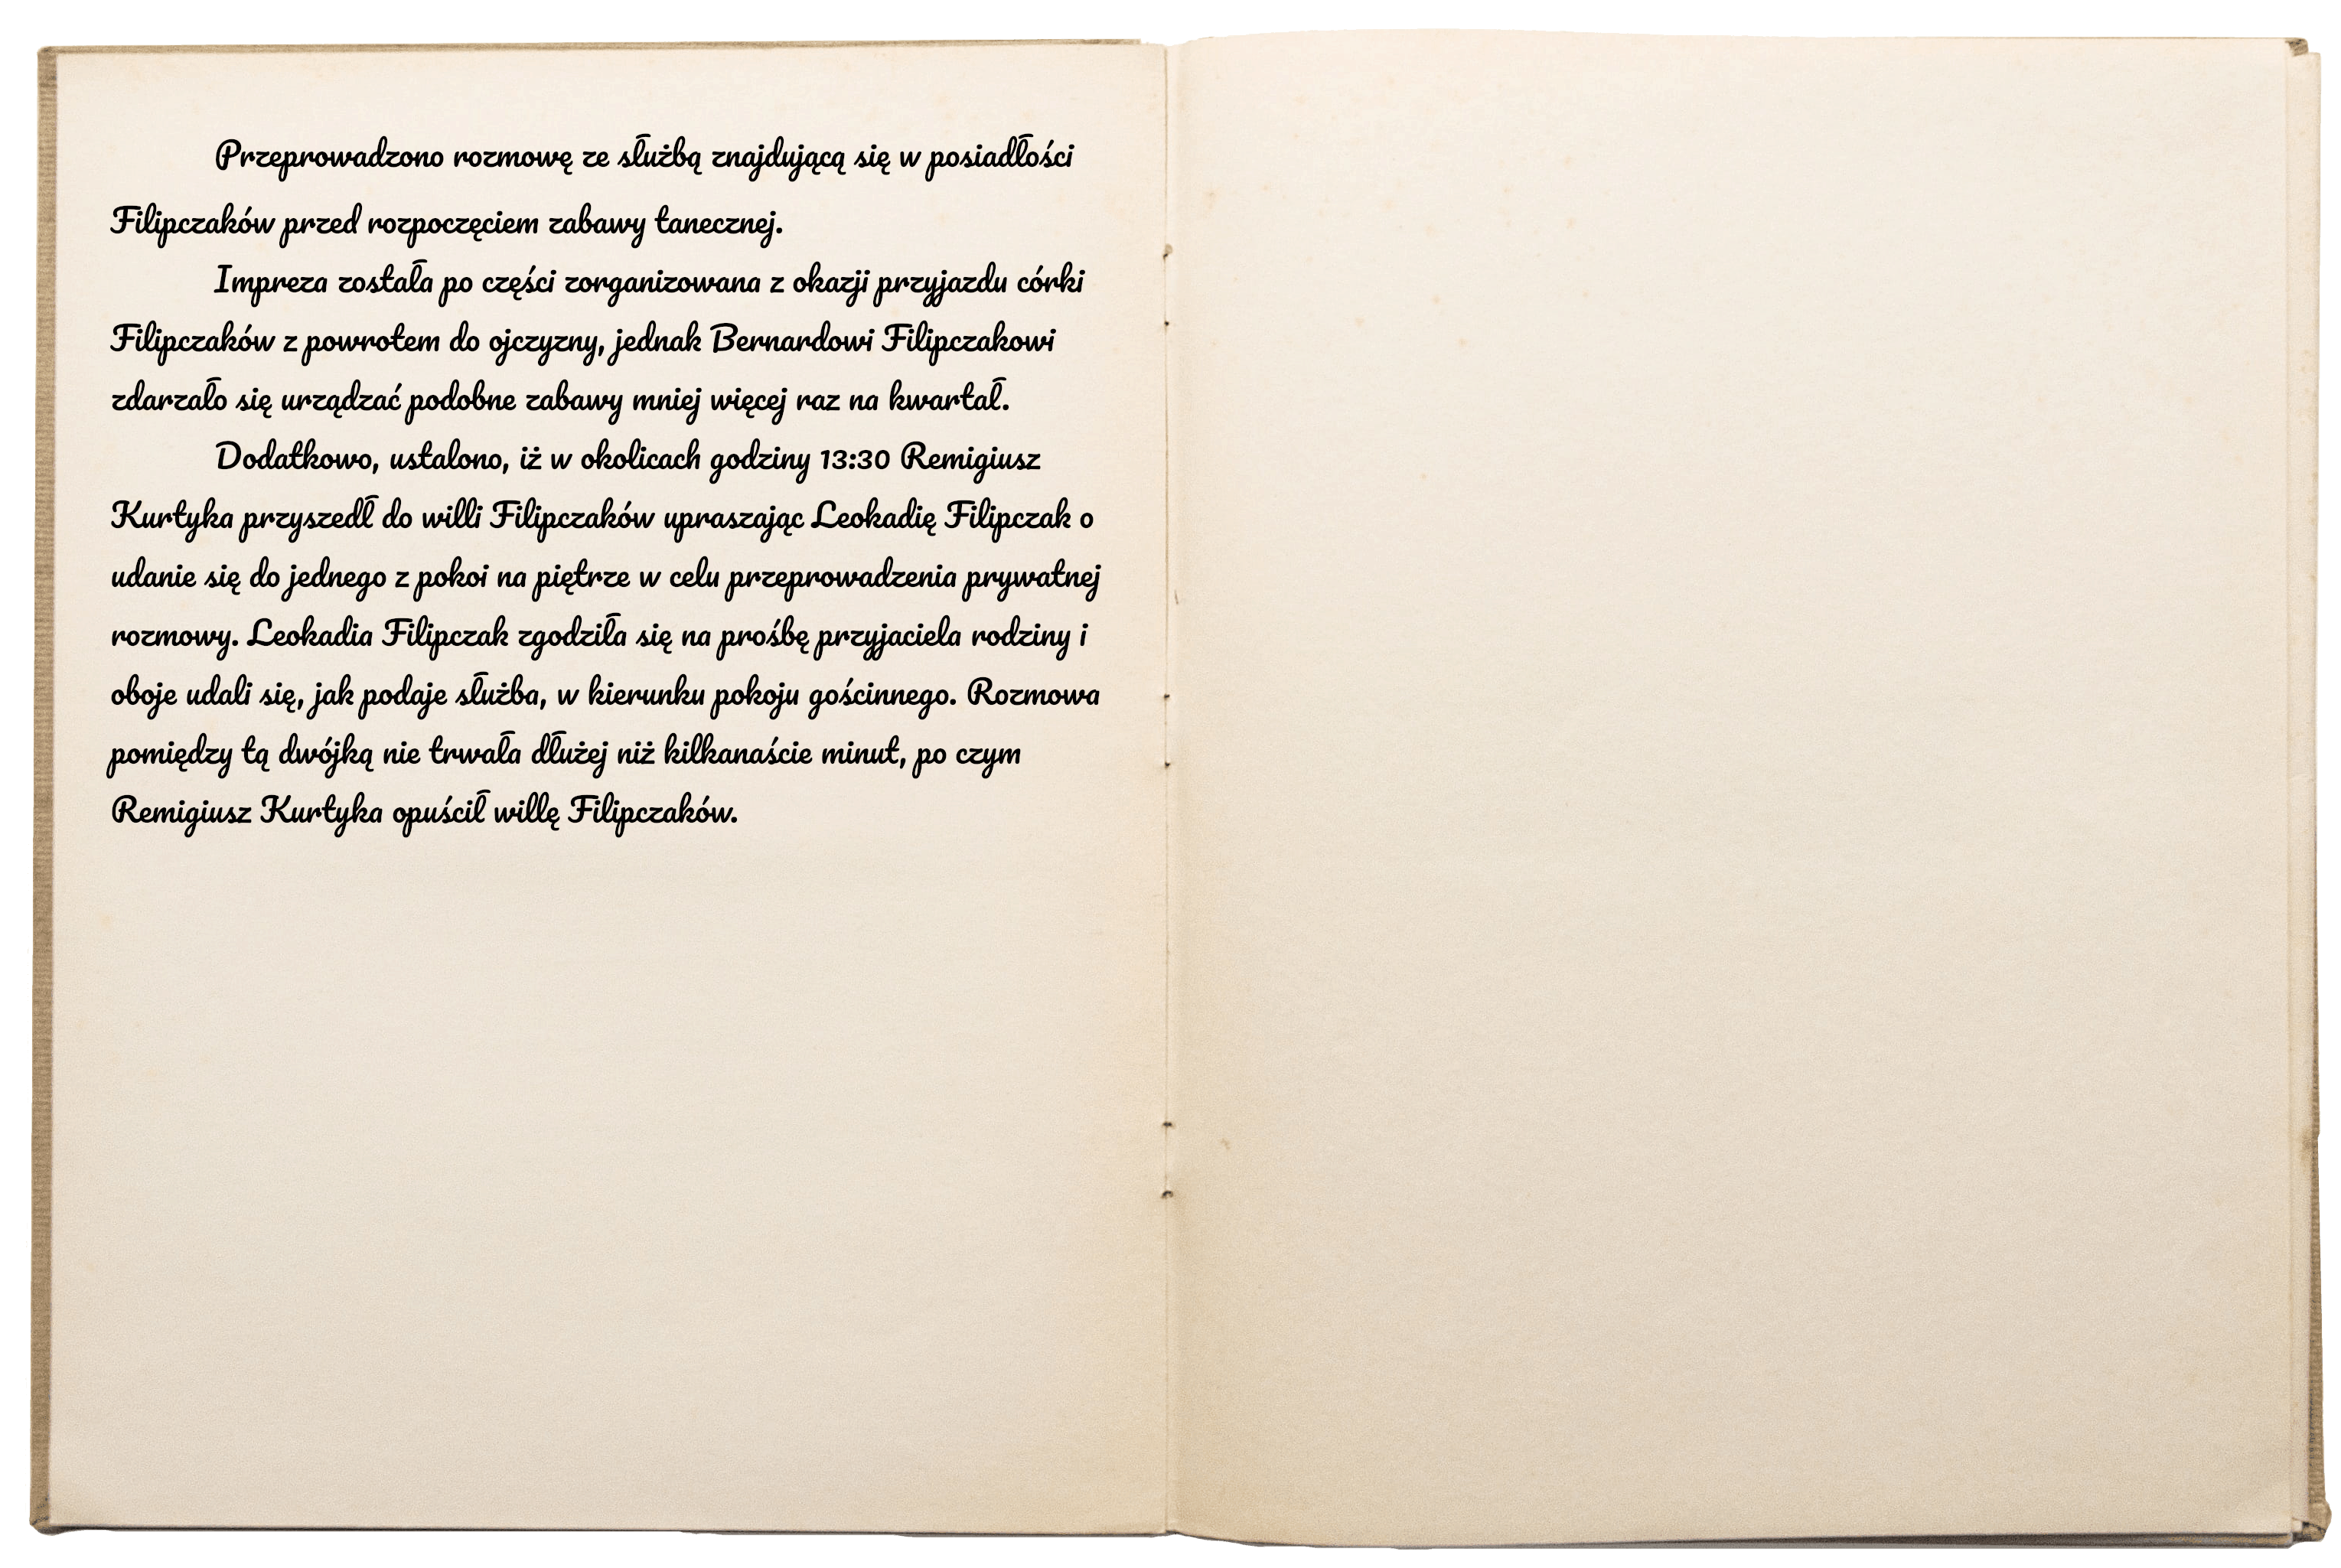 Przeprowadzono rozmowę ze służbą znajdującą się w posiadłości
Filipczaków przed rozpoczęciem zabawy tanecznej.
Impreza została po części zorganizowana z okazji przyjazdu córki
Filipczaków z powrotem do ojczyzny, jednak Bernardowi Filipczakowi
zdarzało się urządzać podobne zabawy mniej więcej raz na kwartał.
Dodatkowo, ustalono, iż w okolicach godziny 13:30 Remigiusz
Kurtyka przyszedł do willi Filipczaków upraszając Leokadię Filipczak o
udanie się do jednego z pokoi na piętrze w celu przeprowadzenia prywatnej
rozmowy. Leokadia Filipczak zgodziła się na prośbę przyjaciela rodziny i
oboje udali się, jak podaje służba, w kierunku pokoju gościnnego. Rozmowa
pomiędzy tą dwójką nie trwała dłużej niż kilkanaście minut, po czym
Remigiusz Kurtyka opuścił willę Filipczaków.